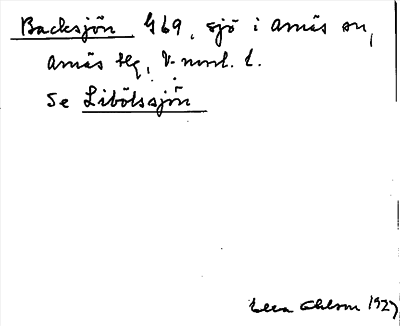 Backsjön 469, sjö i Arnäs sn,
Arnäs tlg, V-norrl. l.
Se Libölssjön
Ohlson 1927